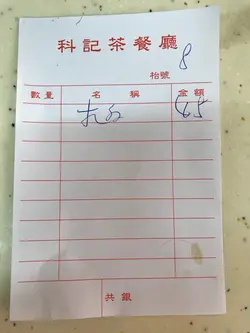 科記茶餐廳
枱號 8
數量 名稱 金額
65
共銀